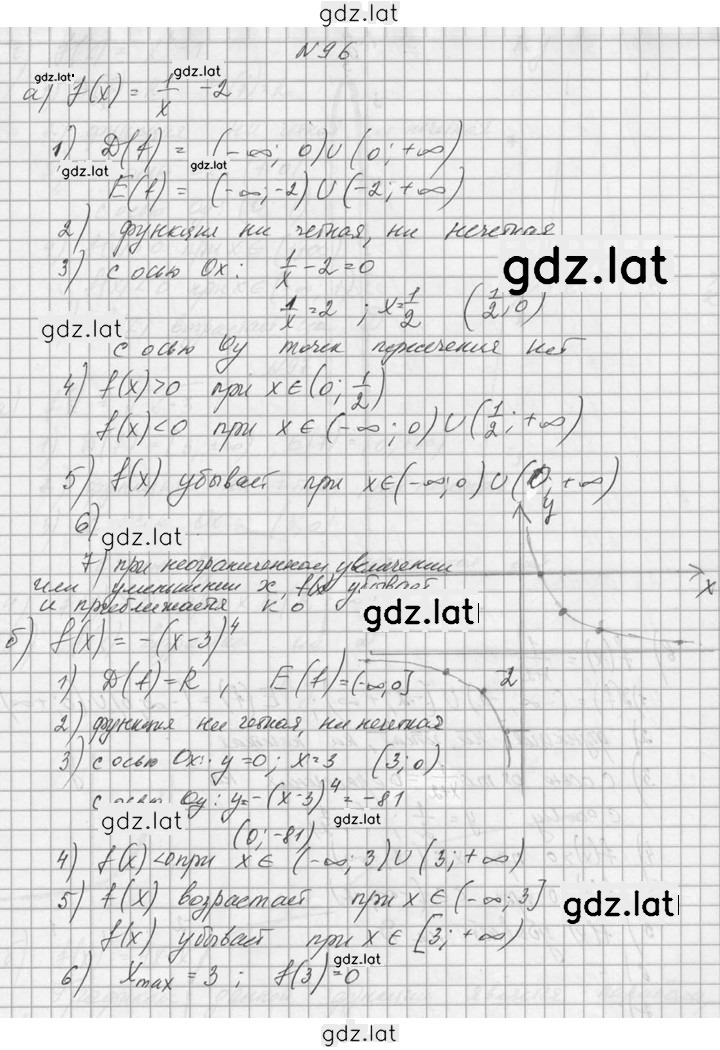 gdz.lat
№96
gdz.lat gdz.lat
а) f(x) = 1/x - 2
1) D(f) = (-∞; 0)∪(0; +∞)
gdz.lat gdz.lat
E(f) = (-∞; -2)∪(-2; +∞)
2) функция ни четная, ни нечетная
3) с осью Ox: 1/x - 2 = 0
gdz.lat
1/x = 2 ; x = 1/2 (1/2; 0)
gdz.lat
с осью Oy точек пересечения нет
4) f(x)>0 при x∈(0; 1/2)
f(x)<0 при x∈(-∞; 0)∪(1/2; +∞)
5) f(x) убывает при x∈(-∞; 0)∪(0; +∞)
y
6)
gdz.lat
7) при неограниченном увеличении
x
или уменьшении x, f(x) убывает
и приближается к 0
gdz.lat
б) f(x) = -(x-3)^4
1) D(f)=R, E(f)=(-∞; 0]
-2
2) функция ни четная, ни нечетная
3) с осью Ox: y=0; x=3 (3; 0)
с осью Oy: y=-(x-3)^4 = -81
gdz.lat gdz.lat
(0; -81)
4) f(x)<0 при x∈(-∞; 3)∪(3; +∞)
5) f(x) возрастает при x∈(-∞; 3]
gdz.lat
f(x) убывает при x∈[3; +∞)
gdz.lat
6) Xmax = 3; f(3)=0
gdz.lat